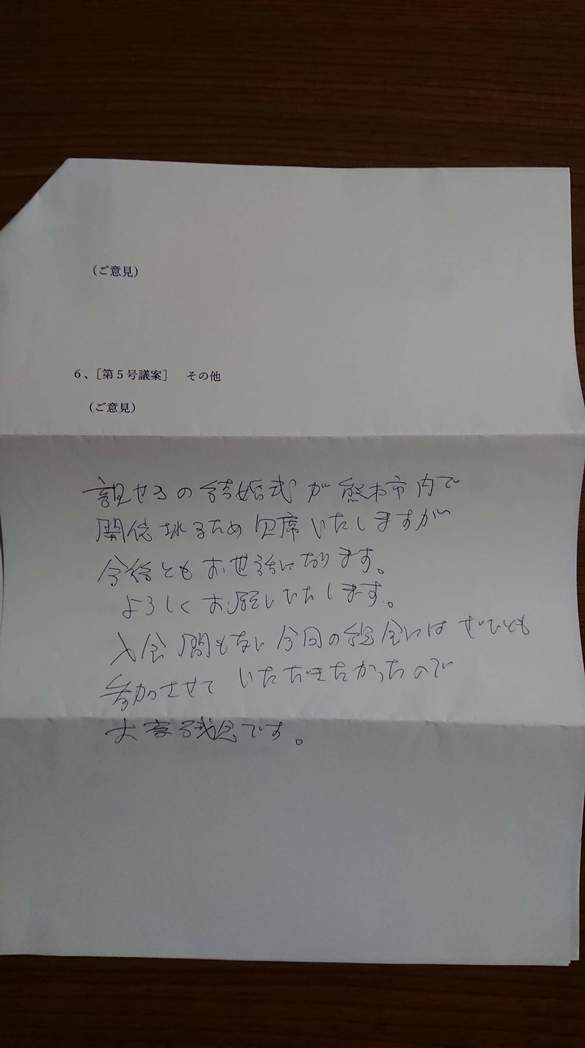 (ご意見)
6、［第5号議案］ その他
(ご意見)
親せきの結婚式が熊本市内で
開催されるため欠席いたしますが
今後ともお世話になります。
よろしくお願いいたします。
入会間もない今回の総会にはぜひとも
参加させていただきたかったので
大変残念です。